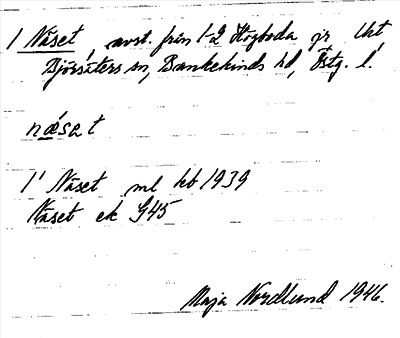 1 Näset, avst. från 1-2 Högboda jr lht
Björsäters sn, Bankekinds hd, Östg. l.
næsat
1' Näset ml hb 1939
Näset ek G45
Maja Nordlund 1946.